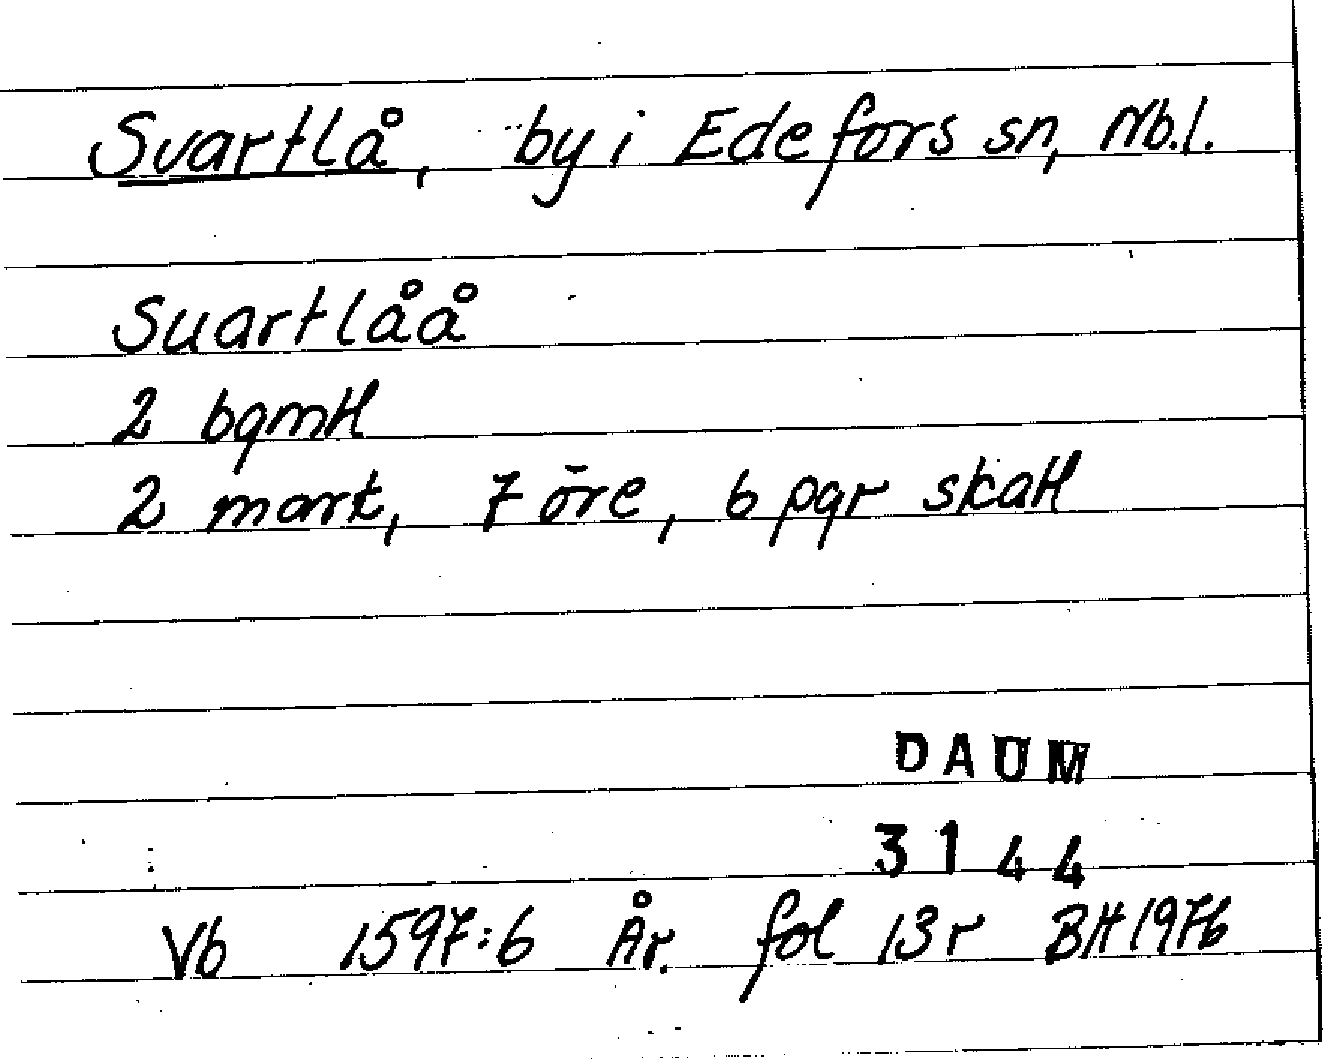 Svartlå, by i Edefors sn, Nb.l.
Suartlåå
2 bqmtl
2 mark, 7 öre, 6 pgr skatt
DAUM
3144
Vb 1597:6 År. fol 13r BH 1976